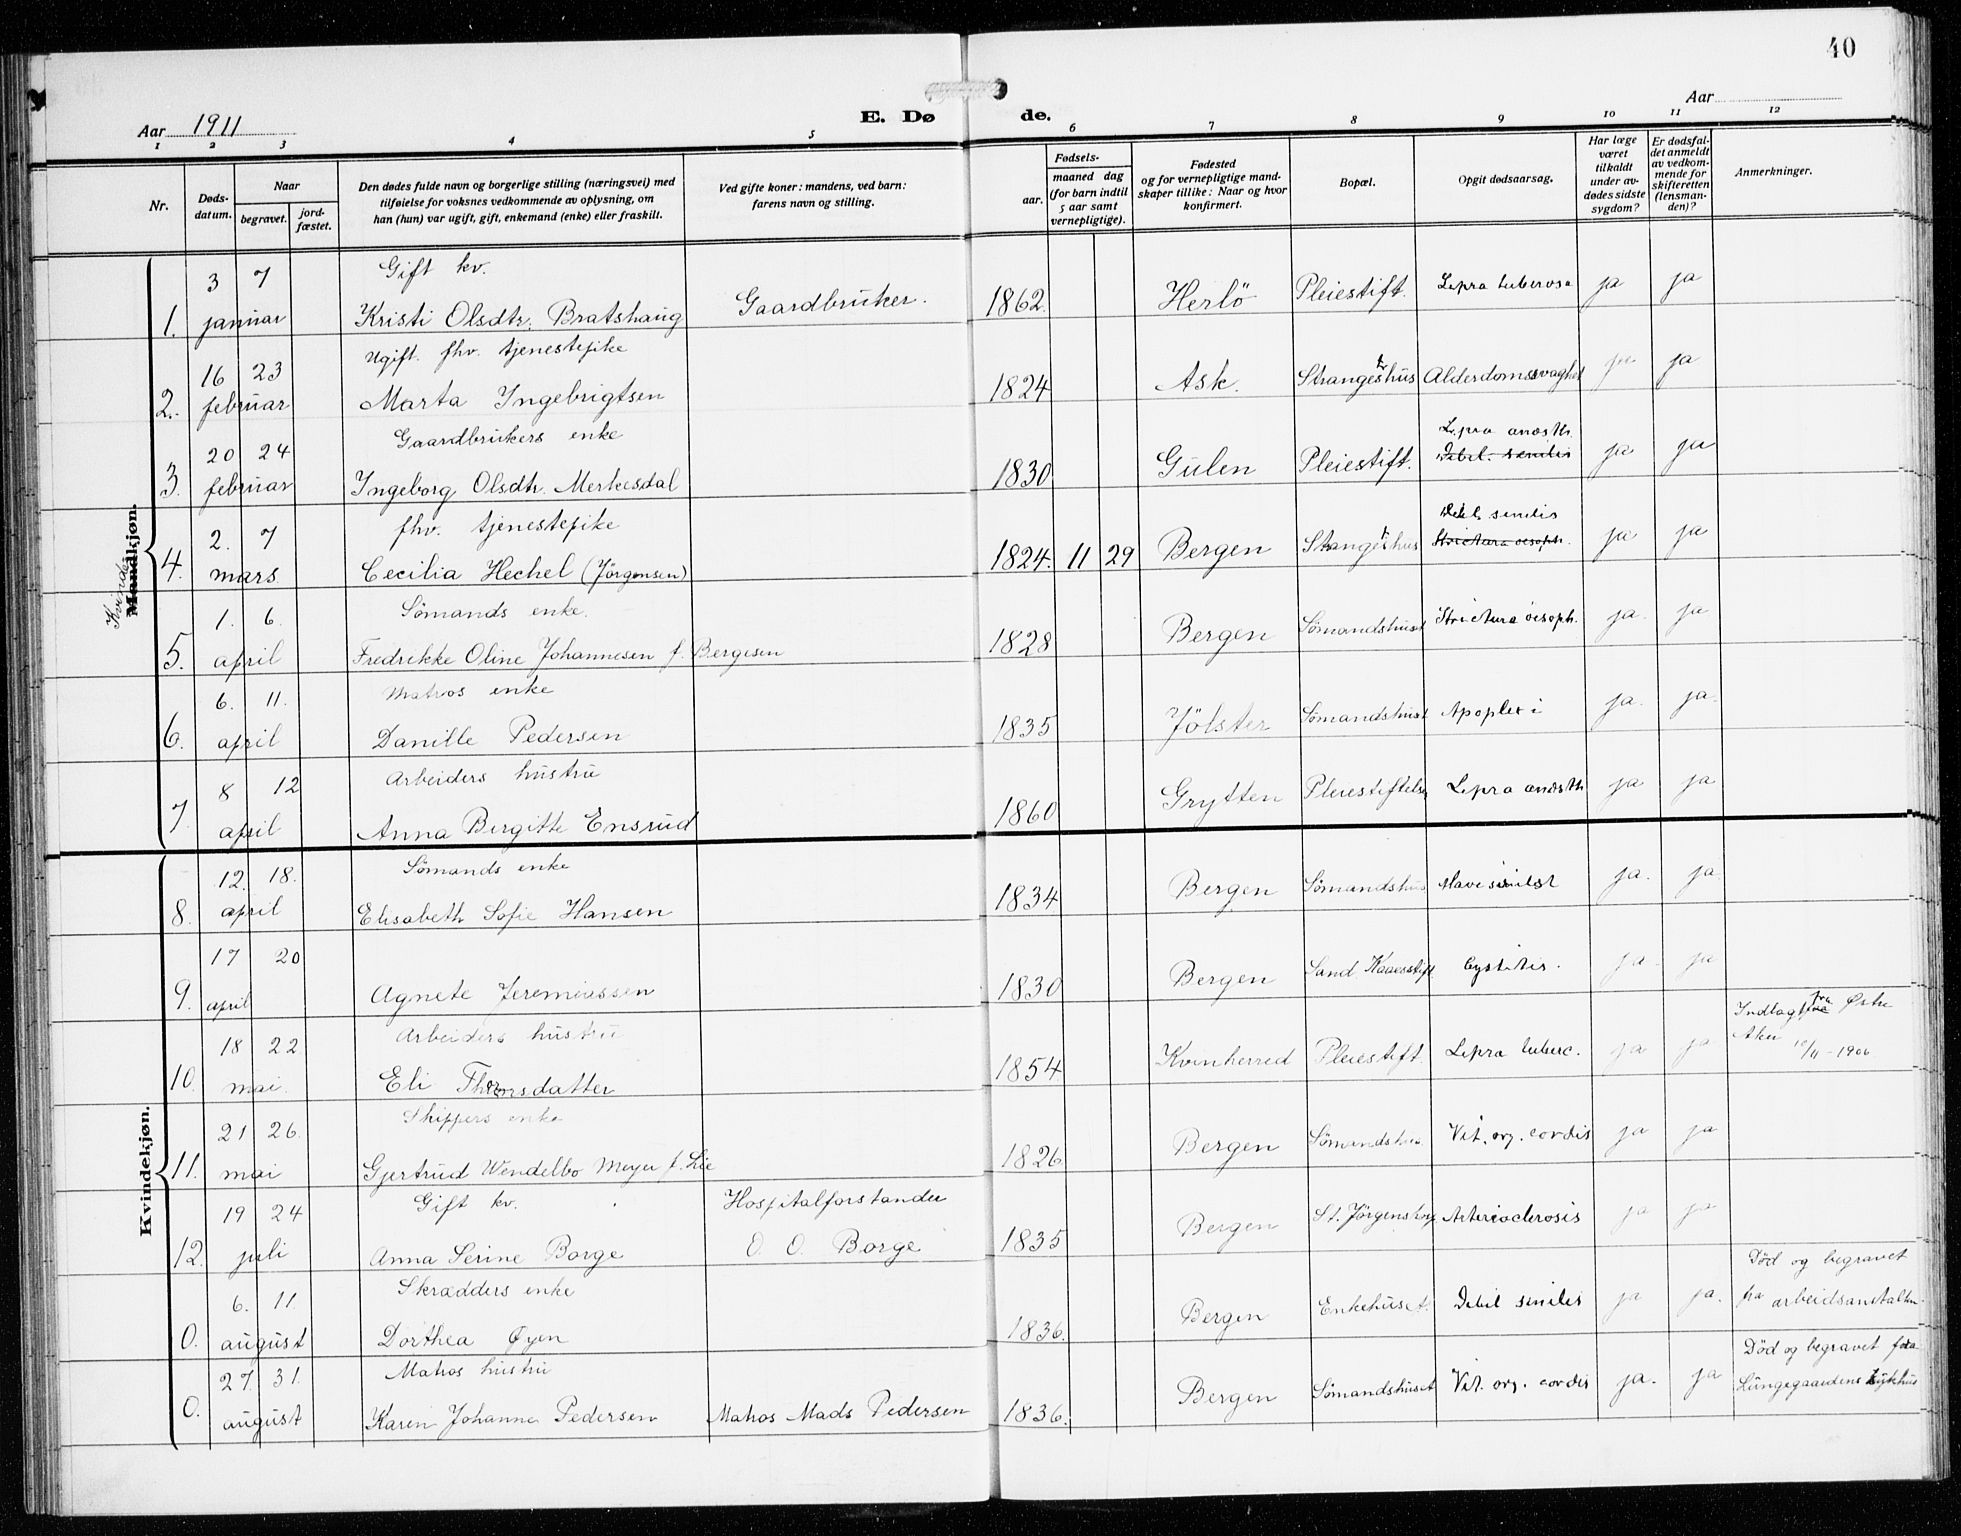 40
Aar 1911
E. Dø de.
Aar
1 2 3 4 5 6 7 8 9 10 11 12
Nr.
Døds-
datum.
Naar
begravet.
jord-
fæstet.
Den dødes fulde navn og borgerlige stilling (næringsvei) med
tilføielse for voksnes vedkommende av oplysning, om
han (hun) var ugift, gift, enkemand (enke) eller fraskilt.
Ved gifte koner: mandens, ved barn:
farens navn og stilling.
Fødsels-
aar.
maaned dag
(for barn indtil
5 aar samt
vernepligtige).
Fødested
og for vernepligtige mand-
skaper tillike: Naar og hvor
konfirmert.
Bopæl.
Opgit dødsaarsag.
Har læge
været
tilkaldt
under av-
dødes sidste
sygdom?
Er dødsfal-
det anmeldt
av vedkom-
mende for
skifteretten
(lensman-
den)?
Anmerkninger.
Kvinde
Mandkjøn.
Kvindekjøn.
3 7 Gift kv.
1. januar Kristi Olsdtr. Bratshaug Gaardbruker. 1862 Herlö Pleiestift. Lepra tuberosa ja ja
16 23 Ugift. fhv. tjenestepike
2. februar Marta Ingebrigtsen 1824 Ask. Stranges hus Alderdomssvaghet ja ja
20 24 Gaardbrukers enke Lepra anæsth.
3. februar Ingeborg Olsdtr. Merkesdal 1830 Gulen Pleiestift. Debil. senilis ja ja
2. 7 fhv. tjenestepike Debil senilis
4. mars Cecilia Hechel (Jörgensen) 1824. 11 29 Bergen Stranges hus Strictura oesoph. ja ja
1. 6. Sömands enke.
5. april Fredrikke Oline Johannesen f. Bergesen 1828 Bergen Sömandshuset Strictura oesoph. ja. ja
6. 11. Matros enke
6. april Danille Pedersen 1835 Jölster Sömandshuset Apoplexi ja. ja.
8 12 Arbeiders hustru
7. april Anna Birgitte Ensrud 1860 Grytten Pleiestiftelse Lepra anæsth ja ja
12. 18. Sömands enke
8. april Elisabeth Sofie Hansen 1834 Bergen Sömandshus Mavesünilst ja. ja.
17 20
9. april Agnete Jeremiassen 1830 Bergen Sand Kaaesstift Cystitis. ja. ja
18 22 Arbeiders hustru
10. mai. Eli Thomsdatter 1854 Kvinherred Pleiestift. Lepra tuberc. ja ja Indlagt fra Østre
Aker 10/4-1906
21 26. Skippers enke
11. mai Gjertrud Wendelbo Meyer f. Lie 1826 Bergen Sömandshus. Vit. org. cordis ja ja
19 24 Gift kv. Hospitalforstander
12. juli Anna Serine Borge O. O. Borge 1835 Bergen St. Jörgenshosp Arteriosclerosis ja ja
6. 11. Skrædders enke
0. august Dorthea Øyen 1836. Bergen Enkehuset. Debil senilis ja ja. Död og begravet
fra arbeidsanstalten.
27. 31. Matros hustru
0. august Karen Johanne Pedersen Matros Mads Pedersen 1836. Bergen Sömandshuset Vit. org. cordis ja. ja Död og begravet fra
Lungegaardens Sykhus